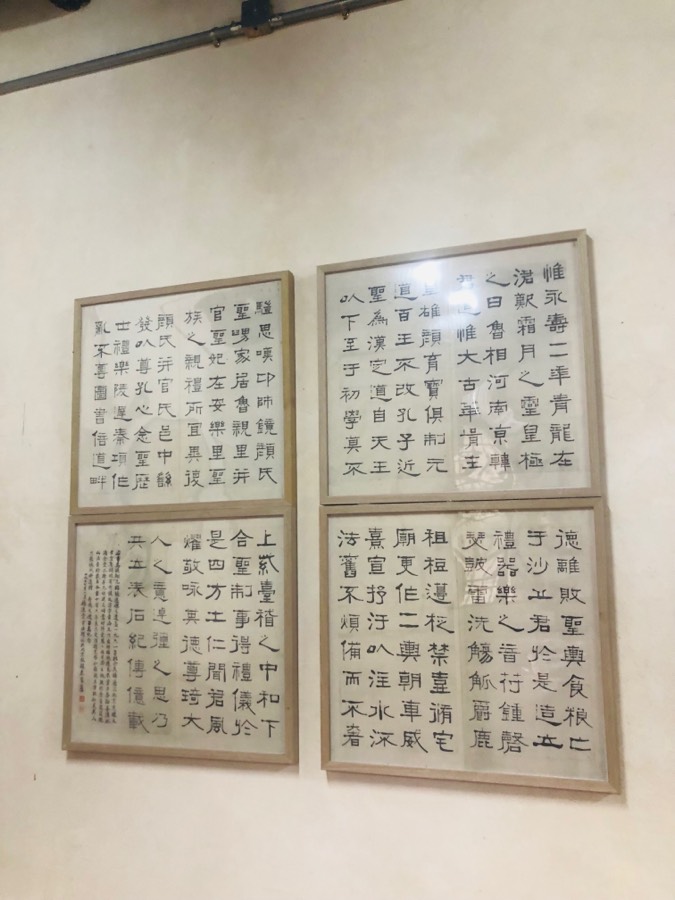 惟永壽二年青龍在
涒歎霜月之靈皇極
之日魯相河南京韓
君追惟大古華胥生
皇雄顏育寶俱制元
道百王不改孔子近
聖為漢定道自天王
以下至于初學莫不
驥思嘆卬師鏡顏氏
聖舅家居魯親里并
官聖妃在安樂里聖
族之親禮所宜異復
顏氏并官氏邑中繇
發以尊孔心念聖歷
士禮樂陵遲秦項作
亂不尊圖書倍道畔
德離敗聖輿食粮亡
于沙丘君於是造立
禮器樂之音符鍾磬
瑟鼓雷洗觴觚爵鹿
柤梪籩柉禁壺脩宅
廟更作二輿朝車威
熹宣抒汙以注水流
法舊不煩備而不奢
上紫臺稽之中和下
合聖制事得禮儀於
是四方士仁聞君風
燿敬咏其德尊琦大
人之意逴彌之思乃
共立表石紀傳億載